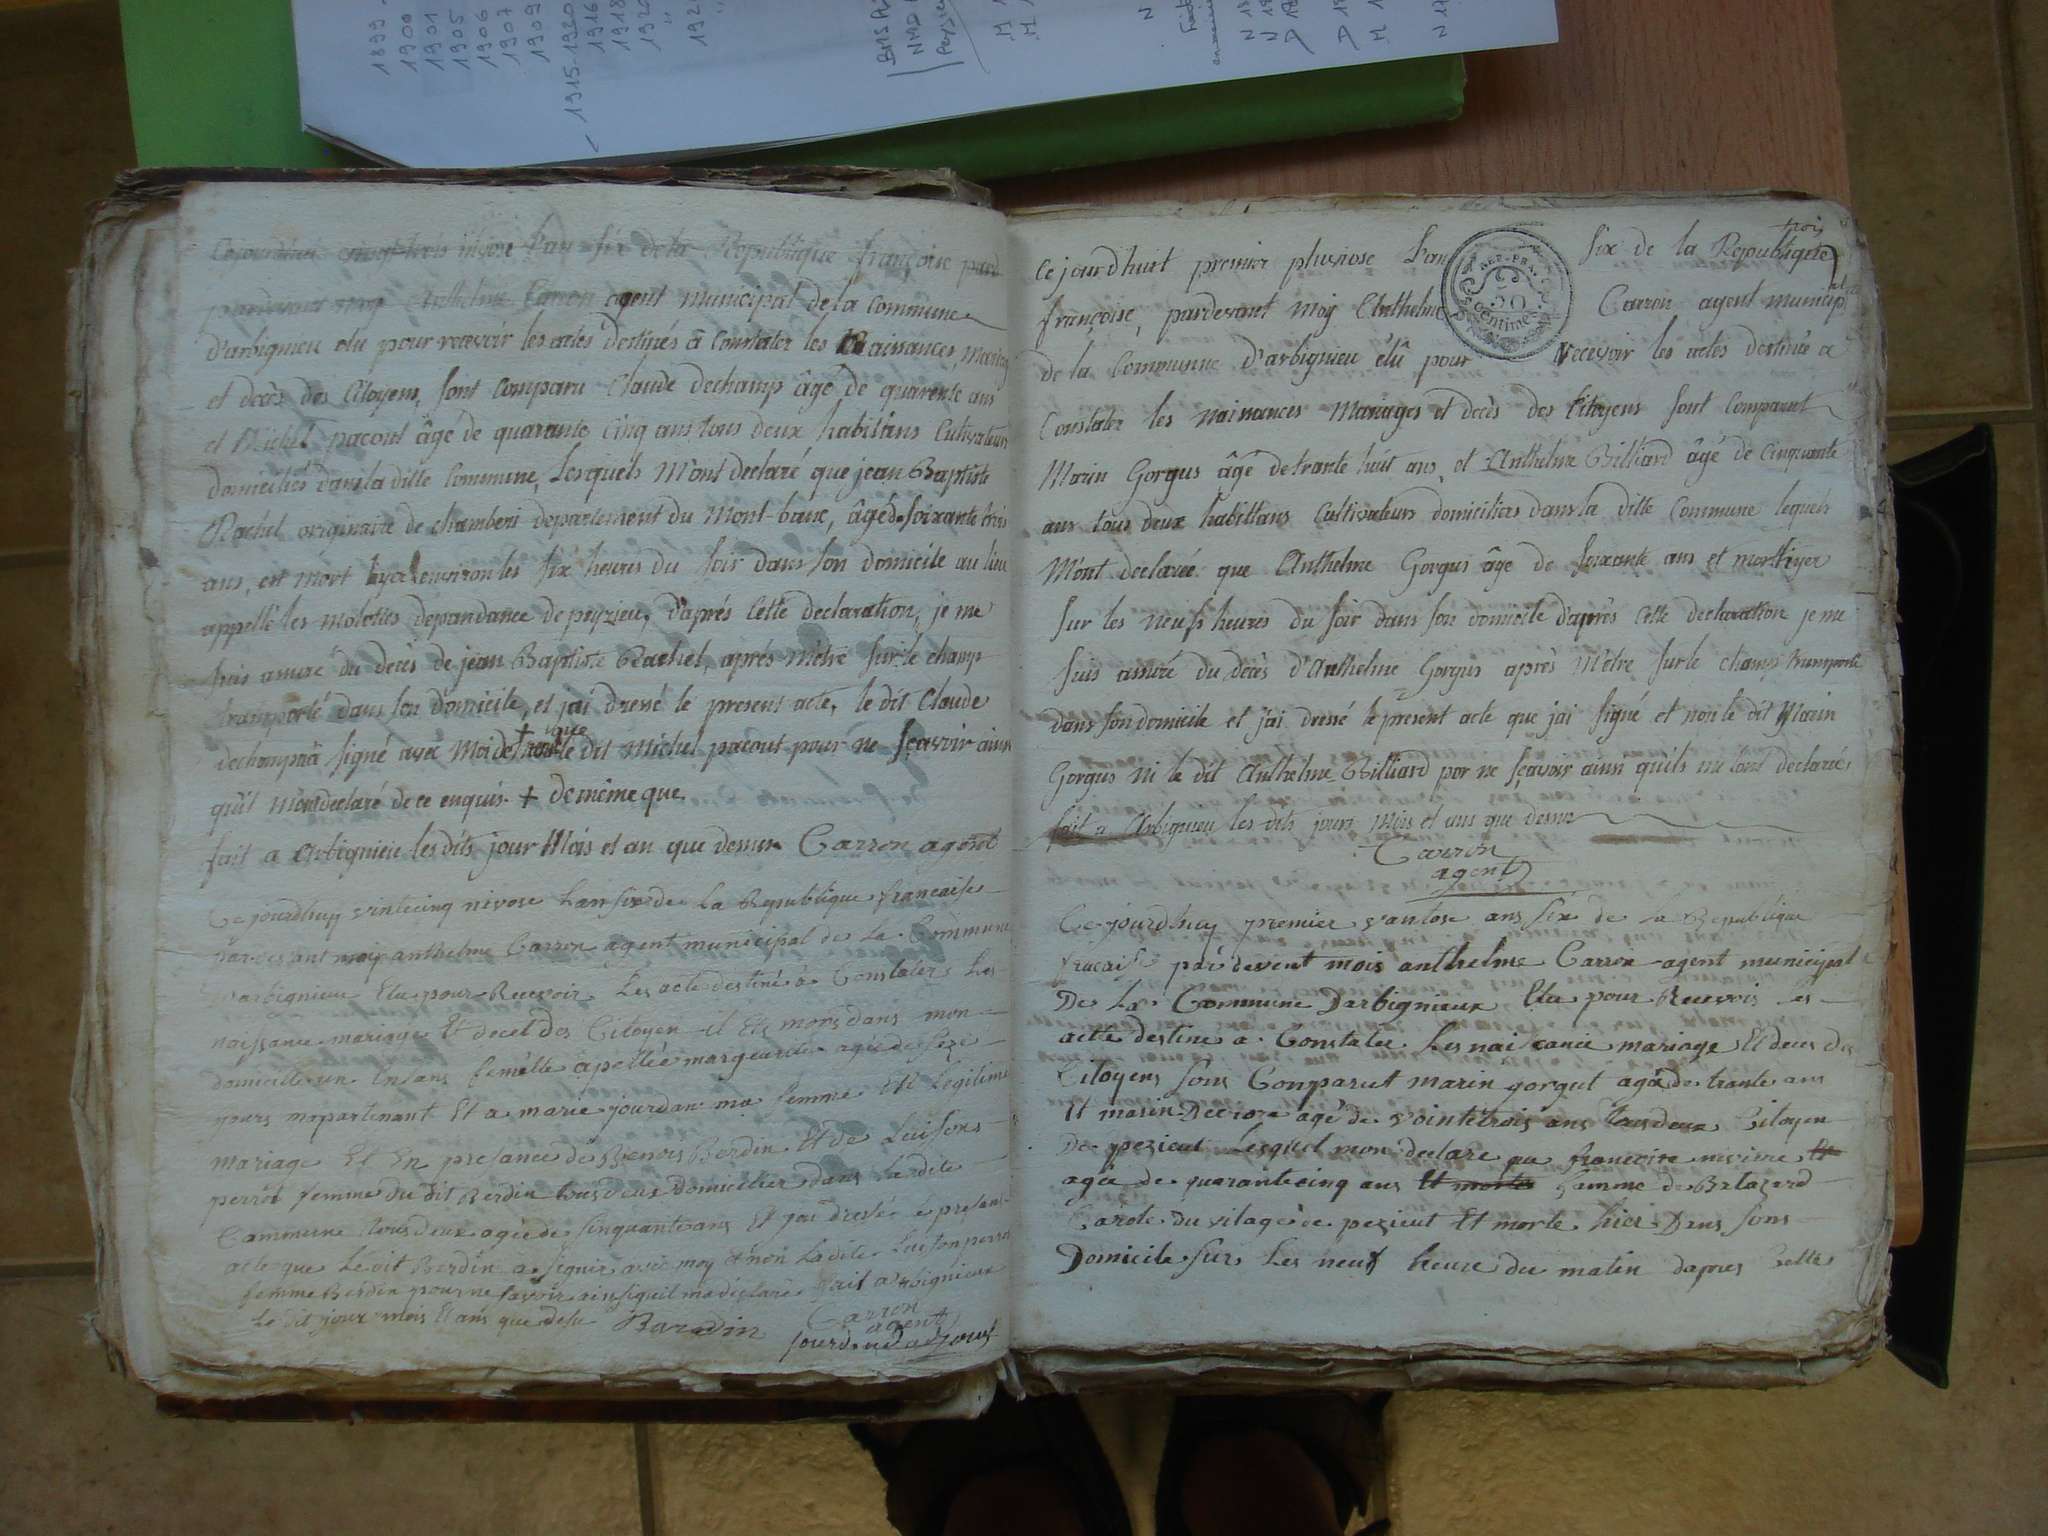 1899
1900
1901
1905
1906
1907
1909
1915-1920
1916
1918
Cejourdhui vingt trois nivose L'an six de la Republique françoise pard
pardevant moy Anthelme Carron agent municipal de la Commune
d'arbignieu elu pour recevoir les actes destinés à Constater les Naissances, Mariag
et decès des Citoyens, sont Comparu Claude dechamp âgé de quarente ans
et Michel pacout âgé de quarante cinq ans tous deux habitans Cultivateurs
domiciliés dans la ditte Commune, Lesquels M'ont declaré que jean Baptiste
Rachel originaire de chamberi departement du Mont-blanc, âgé de soixante trois
ans, est mort hyer environ les six heures du soir dans son domicile au lieu
appellé les Molottes dependance de peyzieu, d'après Cette declaration, je me
suis assuré du decès de jean Baptiste Rachel, après m'être sur le champ
transporté dans son domicile, et j'ai dressé le present acte, le dit Claude
dechamp a signé avec Moi + le dit Michel pacout pour ne sçavoir ainsi
qu'il m'on declaré de ce enquis. + de même que
fait a arbignieu les dits jour Mois et an que dessus Carron agent
Ce jourdhuy vintecinq nivose Lan six de La Republique francaise
pardevant moy anthelme Carron agent municipal de La Commune
d'arbignieux Elu pour Recevoir Les acte destiné a Constater Les
naissance mariage Et decet des Citoyen il Et mors dans mon
domicille un Enfans femelle apellée margueritte agée de seze
jours mapartenant Et a marie jourdan ma femme Et Legitime
mariage Et En presance de Benois Berdin Et de Luison
perron femme du dit Berdin tous deux domicilies dans La dite
Commune tous deux agée de sinquante ans Et jai dressé é presan
acte que Le dit Berdin a signir avec moy Et non La dite Luison perron
femme Berdin pour ne savoir ainsi quil ma declaré fait a arbignieux
Le dit jour mois Et ans que desu Bardin Carron
agent
trois
Ce jourd'huit premier pluviose L'an six de la Republique
REP. FRA.
50
centimes
françoise, pardevant Moy Anthelme Carron agent municipal
de la Commune d'arbignieu élû pour recevoir les actes destinés a
Constater les naissances Mariages et decès des Citoyens sont Comparut
Marin Gorgus âgé de trante huit ans, et Anthelme Billiard âgé de Cinquante
ans tous deux habittans Cultivateurs domiciliés dans la ditte Commune lequels
M'ont declareé que Anthelme Gorgus âgé de soixante ans et mort hyer
sur les neufs heures du soir dans son domicile d'après Cette declaration je me
suis assuré du decès d'Anthelme Gorgus après M'être sur le champ transporté
dans son domicile et j'ai dressé le present acte que j'ai signé et non le dit Marin
Gorgus ni le dit Anthelme Billiard por ne sçavoir ainsi quils me l'ont declarée,
fait a Arbignieu les dits jours Mois et ans que dessus
Carron
agent
Ce jourdhuy premier vantose ans six de La Republique
fracaise par devent mois anthelme Carron agent municipal
De La Commune Darbignieux Elu pour Recevois Les
acte destine a Constater Les naissance mariage Et deces des
Citoyens sons Comparut marin gorgut agé de trante ans
Et marin Decrore agé de vointetrois ans tous deux Citoyen
De pezieut Lesquel mon declare que francoise niviere Et
agée de quarantecinq ans Et morte famme de Balazard
Carote du vilage de pezieut Et morte hier Dans sons
Domicile sur Les neuf heure du matin dapres Cette